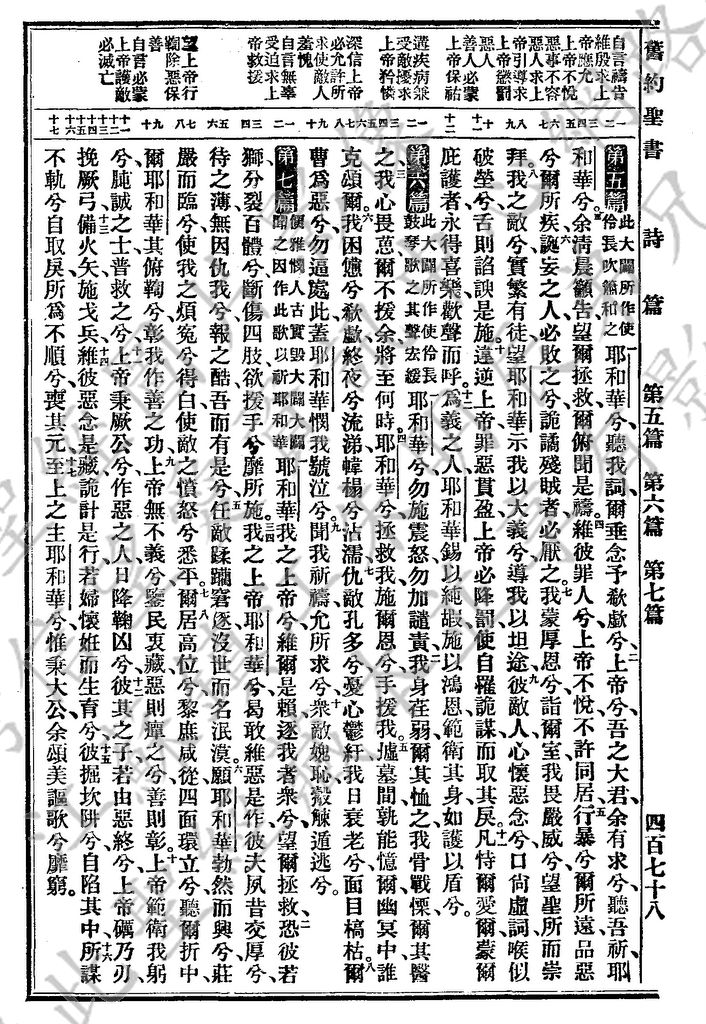 舊約聖書 詩篇 第五篇 第六篇 第七篇 四百七十八
自言禱告
維殷求上
帝應允
上帝不悅
惡事不容
惡人求上
帝引導求
上帝懲罰
惡人
善人必蒙
上帝保祐
遘疾病兼
受敵擾求
上帝矜憐
深信上帝
必允許所
求使敵人
羞愧
自言無辜
受迫求上
帝救援
望上帝行
鞫除惡保
善
自言必蒙
上帝護敵
必滅亡
第五篇 此大闢所作使伶長吹簫和之 耶和華兮、聽我詞、爾垂念予欷歔兮、上帝兮、吾之大君、余有求兮、聽吾祈、耶
和華兮、余清晨籲告、望爾拯救、爾俯聞是禱、維彼罪人兮、上帝不悅、不許同居、行暴兮、爾所遠、品惡
兮、爾所疾、誕妄之人必敗之兮、詭譎殘賊者必厭之、我蒙厚恩兮、詣爾室、我畏嚴威兮、望聖所而崇
拜、我之敵兮、實繁有徒、望耶和華示我以大義兮、導我以坦途、彼敵人心懷惡念兮、口尚虛詞、喉似
破塋兮、舌則諂諛是施、違逆上帝、罪惡貫盈、上帝必降罰、使自罹詭謀、而取其戾、凡恃爾愛爾、蒙爾
庇護者、永得喜樂、歡聲而呼、爲義之人、耶和華錫以純嘏、施以鴻恩、範衛其身、如護以盾兮。
第六篇 此大闢所作使伶長鼓琴歌之其聲去緩 耶和華兮、勿施震怒、勿加譴責、我身荏弱、爾其恤之、我骨戰慄、爾其醫
之、我心畏葸、爾不援余、將至何時、耶和華兮、拯救我、施爾恩兮、手援我、墟墓間孰能憶爾、幽冥中誰
克頌爾、我困憊兮、欷歔終夜兮、流涕幃榻兮、沾濡仇敵孔多兮、憂心鬱紆、我日衰老兮、面目槁枯、爾
曹爲惡兮、勿逼處此、蓋耶和華憫我號泣兮、聞我祈禱、允所求兮、衆敵媿恥、觳觫遁逃兮。
第七篇 便雅憫人古實毀大闢大闢聞之因作此歌以祈耶和華 耶和華我之上帝兮、維爾是賴、逐我者衆兮、望爾拯救、恐彼若
獅、分裂百體兮、斷傷四肢、欲援手兮靡所施、我之上帝耶和華兮、曷敢維惡是作、彼夫夙昔交厚兮、
待之薄、無因仇我兮、報之酷、吾而有是兮、任敵蹂躪、窘逐沒世而名泯漠、願耶和華勃然而興兮、莊
嚴而臨兮、使我之煩冤兮得白、使敵之憤怒兮悉平、爾居高位兮、黎庶咸從、四面環立兮、聽爾折中、
爾耶和華其俯鞫兮、彰我作善之功、上帝無不義兮、鑒民衷藏、惡則癉之兮、善則彰、上帝範衛我躬
兮、肫誠之士普救之兮、上帝秉厥公兮、作惡之人日降鞫凶兮、彼其之子、若由惡終兮、上帝礪乃刃、
挽厥弓、備火矢、施戈兵、維彼惡念是藏、詭計是行、若婦懷姙而生育兮、彼掘坎阱兮、自陷其中、所謀
不軌兮、自取戾、所爲不順兮、喪其元、至上之主耶和華兮、惟秉大公、余頌美謳歌兮靡窮。